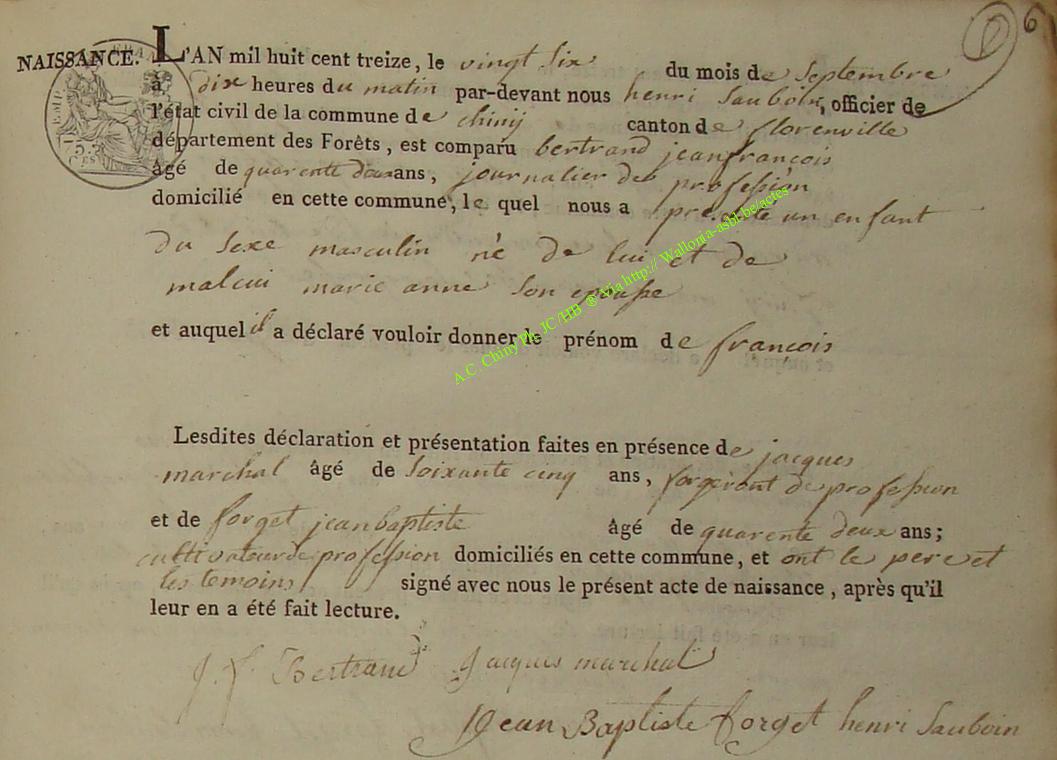 6
NAISSANCE. L'AN mil huit cent treize, le vingt six du mois de Septembre
à dix heures du matin par-devant nous henri Sauboin, officier de
l'état civil de la commune de chiny canton de florenville
département des Forêts, est comparu bertrand jeanfrancois
âgé de quarente deux ans, journalier de profession
domicilié en cette commune, le quel nous a presenté un enfant
du Sexe masculin né de lui et de
marie anne Son epouse
et auquel il a déclaré vouloir donner le prénom de françois
A.C. Chiny Ph. JC/HB ® Via http:// Wallonia-asbl.be/actes
Lesdites déclaration et présentation faites en présence de jacques
marchal âgé de Soixante cinq ans, forgeront de profession
et de forget jean baptiste âgé de quarente deux ans;
cultivateur de profession domiciliés en cette commune, et ont le pere et
les temoins signé avec nous le présent acte de naissance, après qu'il
leur en a été fait lecture.
J. f. Bertrand Jacques marchal
Jean Baptiste forget henri Sauboin